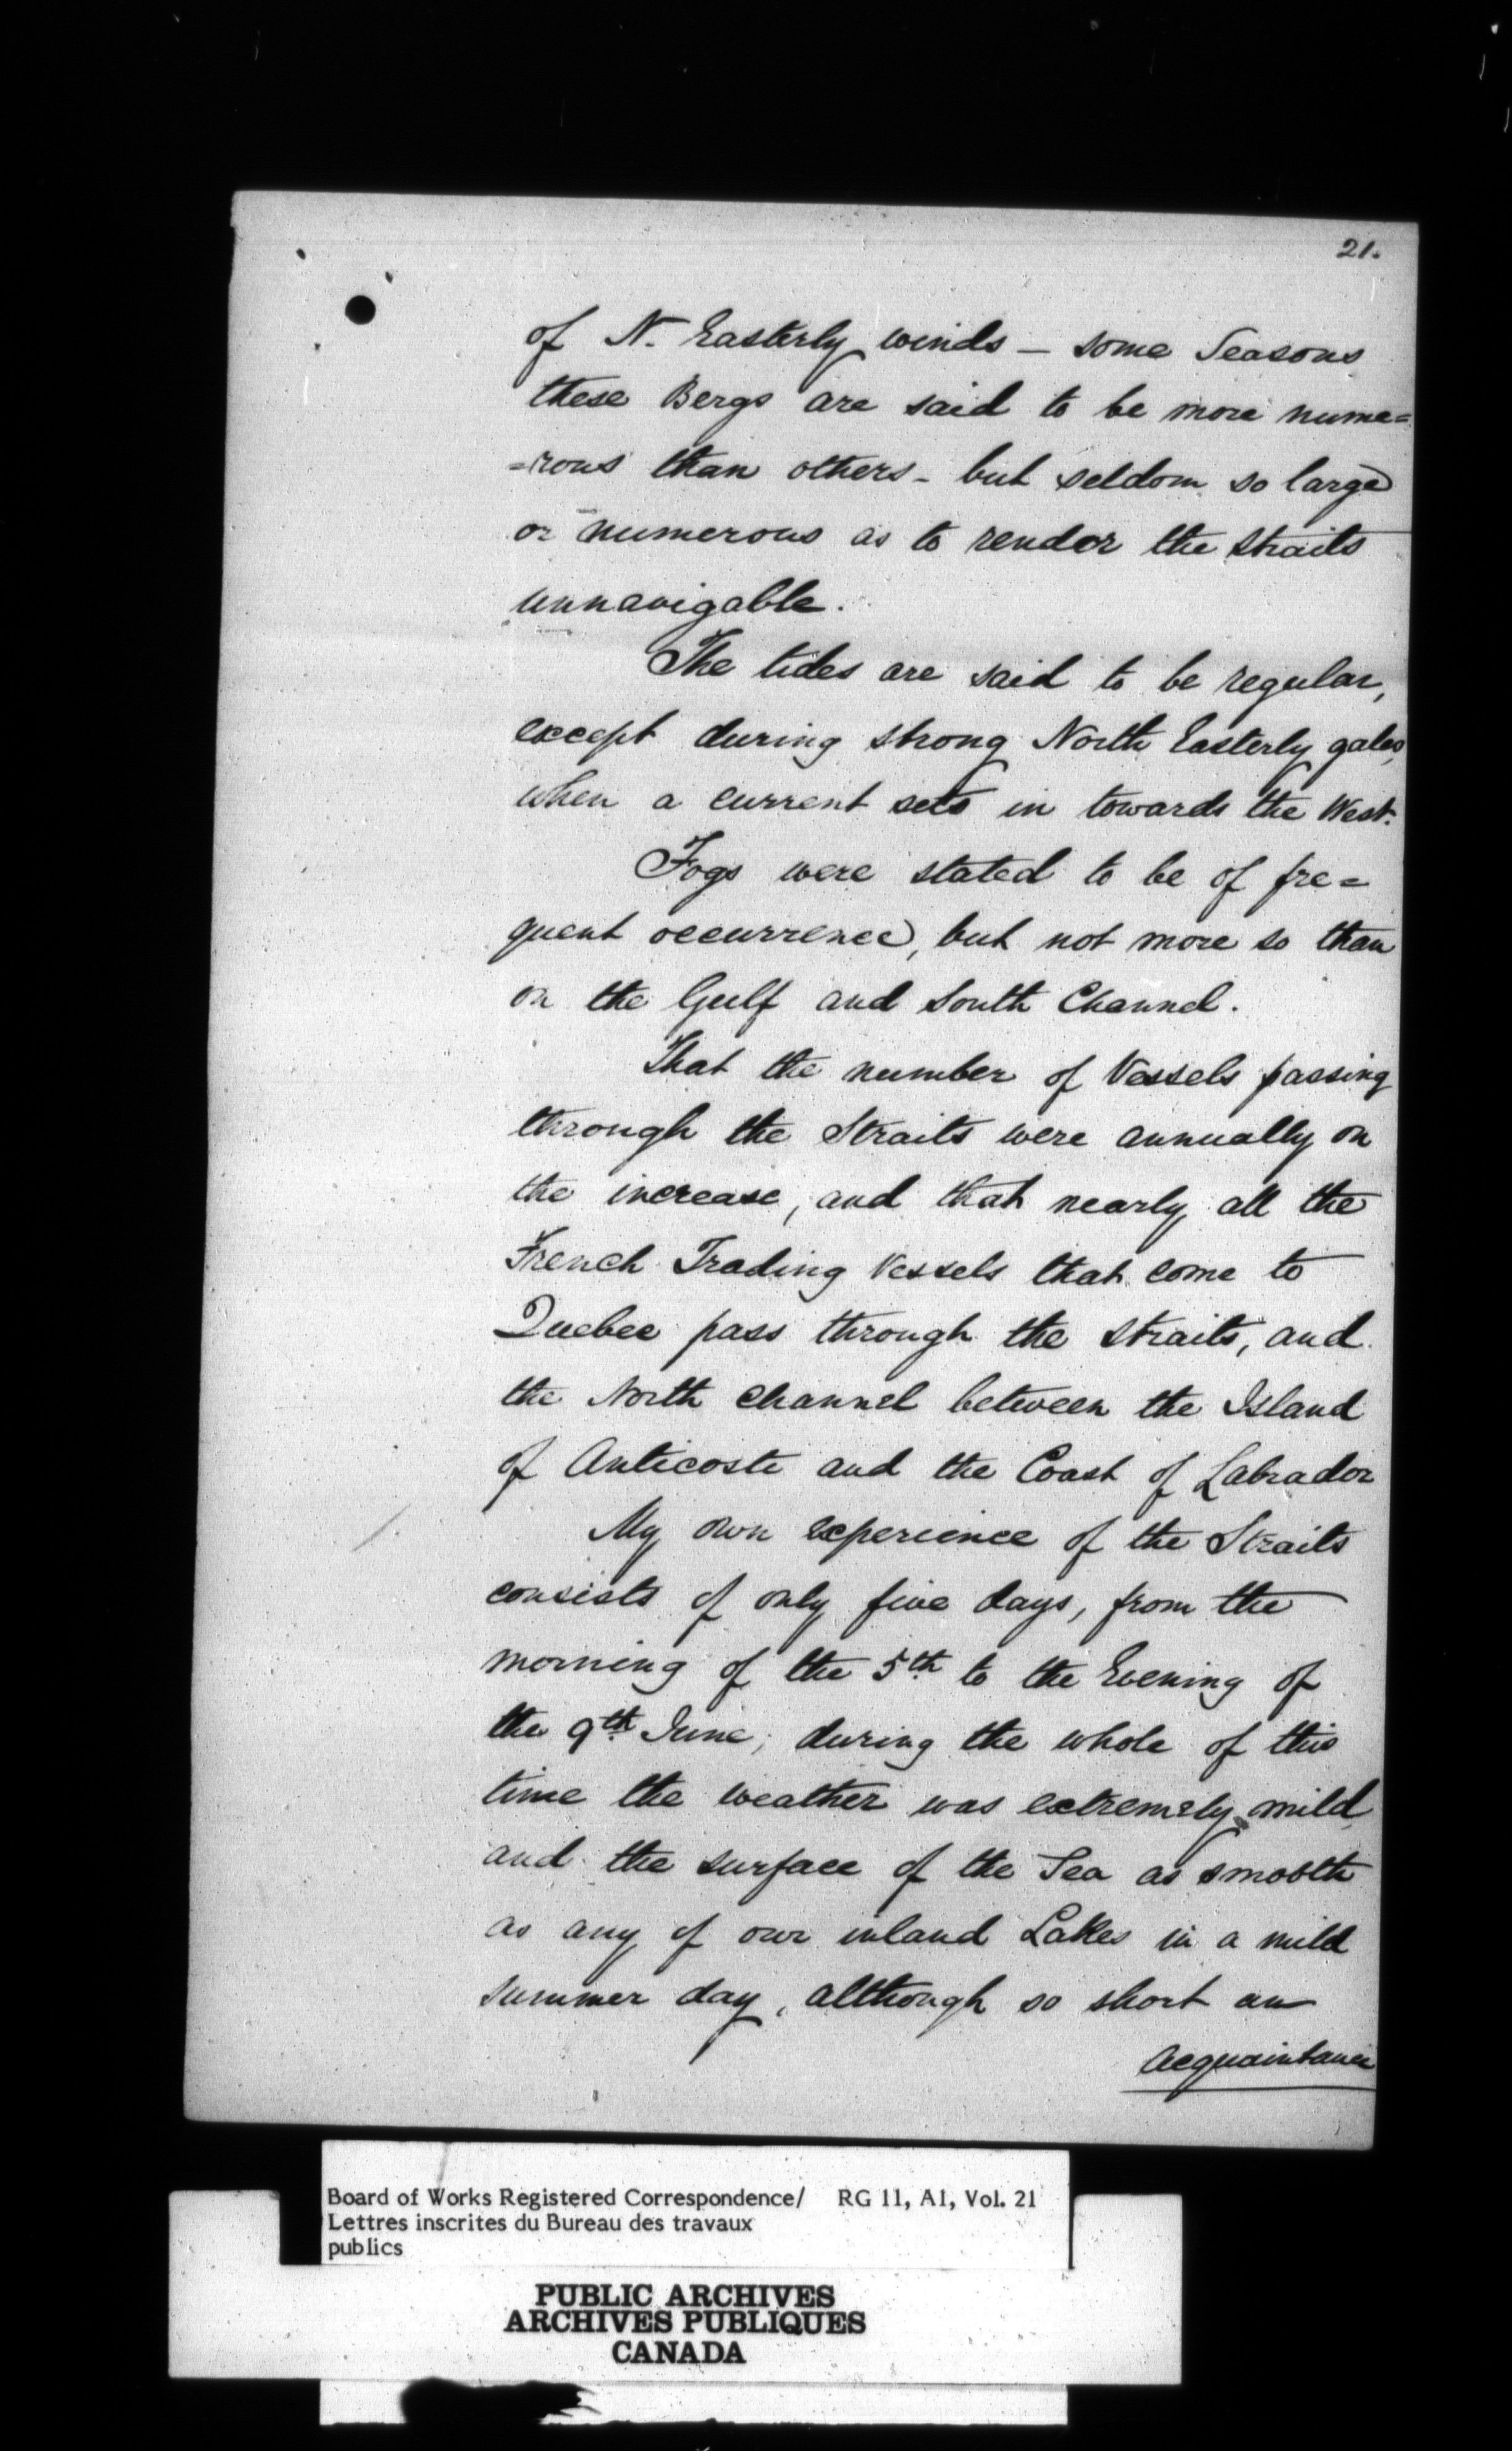 21.
of N. Easterly winds – some Seasons
these Bergs are said to be more nume=
=rous than others – but seldom so large
or numerous as to render the Straits
unnavigable.
The tides are said to be regular,
except during strong North Easterly gales,
when a current sets in towards the West.
Fogs were stated to be of fre=
quent occurrence, but not more so than
on the Gulf and South Channel.
That the number of Vessels passing
through the Straits were annually on
the increase, and that nearly all the
French Trading Vessels that come to
Quebec pass through the Straits, and
the North Channel between the Island
of Anticosti and the Coast of Labrador
My own experience of the Straits
consists of only five days, from the
morning of the 5th to the Evening of
the 9th June; during the whole of this
time the weather was extremely mild,
and the surface of the Sea as smooth
as any of our inland Lakes in a mild
summer day, although so short an
acquaintance
Board of Works Registered Correspondence/ RG 11, A1, Vol. 21
Lettres inscrites du Bureau des travaux
publics
PUBLIC ARCHIVES
ARCHIVES PUBLIQUES
CANADA